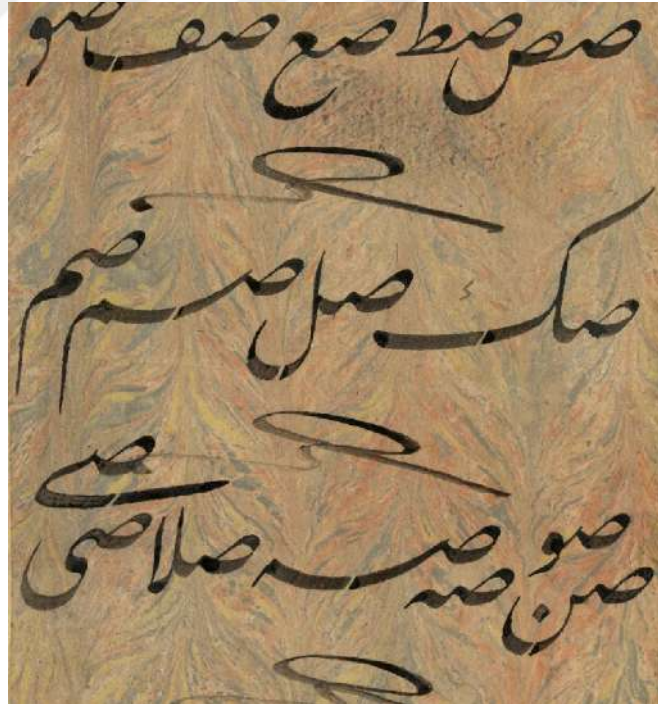 صص صط صع صف صو
صک صل صم صم
صن صو صه صه صلا صی صے